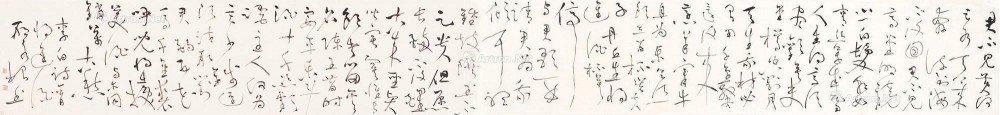 君不見黃河
之水天上來
奔流到海
不復回君不見
高堂明鏡
悲白髮朝如
青絲暮成雪
人生得意須
盡歡莫使
金樽空對月
天生我材必
有用千金散盡
還復來
烹羊宰牛
且為樂會須
一飲三百杯
岑夫子
丹丘生將
進酒杯莫
停
與君歌一曲
請君為我
傾耳聽
鐘鼓饌玉不
足貴但願
長醉不復醒
古來聖賢
皆寂寞惟有
飲者留其
名陳王昔時
宴平樂斗
酒十千恣歡
謔主人何為
言少錢徑
須沽取對
君酌五花
馬千金裘
呼兒將出換
美酒與爾同
銷萬古愁
李白詩一首
將進酒